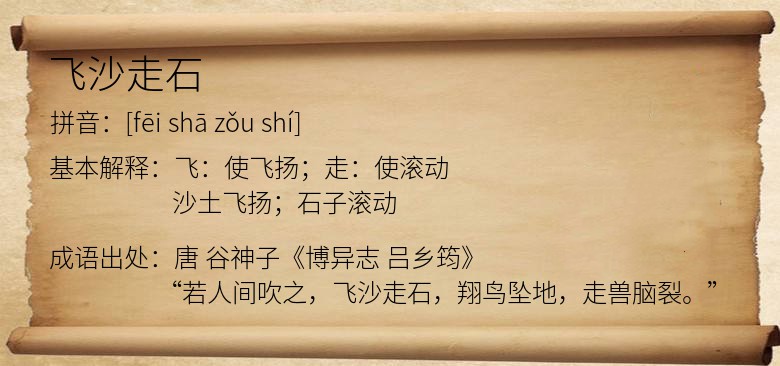 飞沙走石
拼音：[fēi shā zǒu shí]
基本解释：飞：使飞扬；走：使滚动
沙土飞扬；石子滚动
成语出处：唐 谷神子《博异志 吕乡筠》
“若人间吹之，飞沙走石，翔鸟坠地，走兽脑裂。”